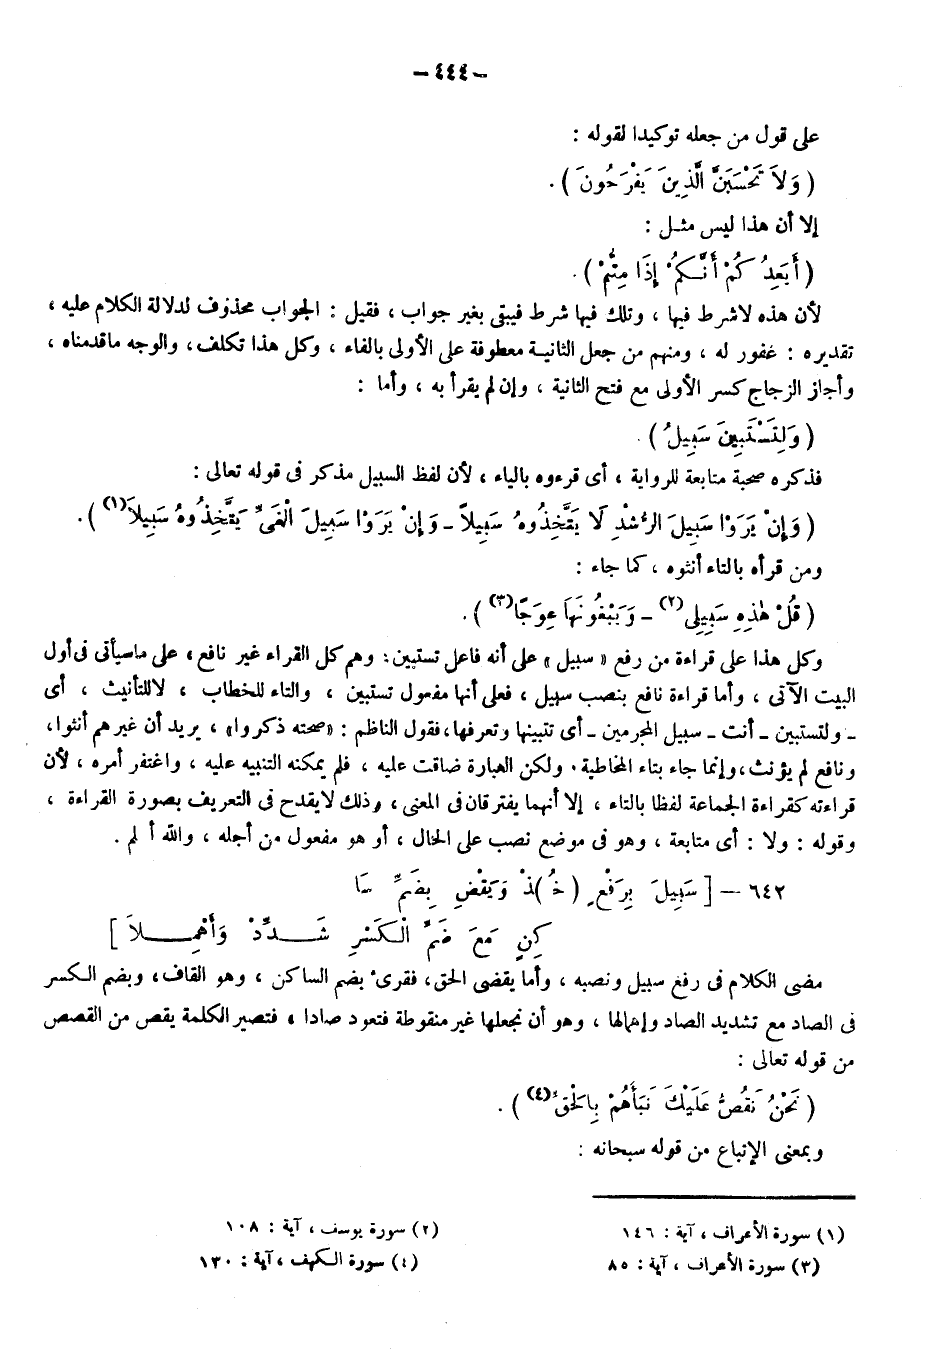 — ٤٤٤ —
على قول من جعله توكيدا لقوله :
( وَلاَ تَحْسَبَنَّ الَّذِينَ يَفْرَحُونَ ) .
إلا أن هذا ليس مثل :
( أَيَعِدُ كُمْ أَنَّكُمْ إِذَا مِتُّمْ ) .
لأن هذه لاشرط فيها ، وتلك فيها شرط فيبقى بغير جواب ، فقيل : الجواب محذوف لدلالة الكلام عليه ،
تقديره : غفور له ، ومنهم من جعل الثانية معطوفة على الأولى بالفاء ، وكل هذا تكلف، والوجه ماقدمناه ،
وأجاز الزجاج كسر الأولى مع فتح الثانية ، وإن لم يقرأ به ، وأما :
( وَلِتَسْتَبِينَ سَبِيلُ ) .
فذكره صحبة متابعة للرواية ، أى قرءوه بالياء ، لأن لفظ السبيل مذكر فى قوله تعالى :
( وَإِنْ يَرَوْا سَبِيلَ الرُّشْدِ لَا يَتَّخِذُوهُ سَبِيلاً – وَإِنْ يَرَوْا سَبِيلَ الْغَىِّ يَتَّخِذُوهُ سَبِيلاً(١) ) .
ومن قرأه بالتاء أنثوه ، كما جاء :
( قُلْ هٰذِهِ سَبِيلِى(٢) – وَيَبْغُونَهَا عِوَجًا(٣) ) .
وكل هذا على قراءة من رفع «سبيل» على أنه فاعل تستبين: وهم كل القراء غير نافع، على ماسيأتى فى أول
البيت الآتى ، وأما قراءة نافع بنصب سهيل ، فعلى أنها مفعول تستبين ، والتاء للخطاب ، لاللتأنيث ، أى
– ولتستبين – أنت – سبيل المجرمين – أى تتبينها وتعرفها، فقول الناظم : «صحبته ذكروا» ، يريد أن غيرهم أنثوا،
ونافع لم يؤنث ، وإنما جاء بتاء المخاطبة . ولكن العبارة ضاقت عليه ، فلم يمكنه التنبيه عليه ، واغتفر أمره ، لأن
قراءته كقراءة الجماعة لفظا بالتاء ، إلا أنهما يفترقان فى المعنى ، وذلك لايقدح فى التعريف بصورة القراءة ،
وقوله : ولا : أى متابعة ، وهو فى موضع نصب على الحال ، أو هو مفعول من أجله ، والله أ لم .
٦٤٢ – [ سَبِيلَ بِرَفْعٍ (خُـ)ذْ وَيَقْضِ بِضَمِّ سَا
كِنٍ مَعَ ضَمِّ الْكَسْرِ شَدِّدْ وَأَهْمِلاَ ]
مضى الكلام فى رفع سبيل ونصبه ، وأما يقضى الحق، فقرئ بضم الساكن ، وهو القاف، وبضم الكسر
فى الصاد مع تشديد الصاد وإهمالها ، وهو أن نجعلها غير منقوطة فتعود صادا ، فتصير الكلمة يقص من القصص
من قوله تعالى :
( نَحْنُ نَقُصُّ عَلَيْكَ نَبَأَهُمْ بِالْحَقِّ(٤) ) .
وبمعنى الإتباع من قوله سبحانه :
(١) سورة الأعراف ، آية : ١٤٦ (٢) سورة يوسف ، آية : ١٠٨
(٣) سورة الأعراف ، آية : ٨٥ (٤) سورة الكهف ، آية : ١٣٠